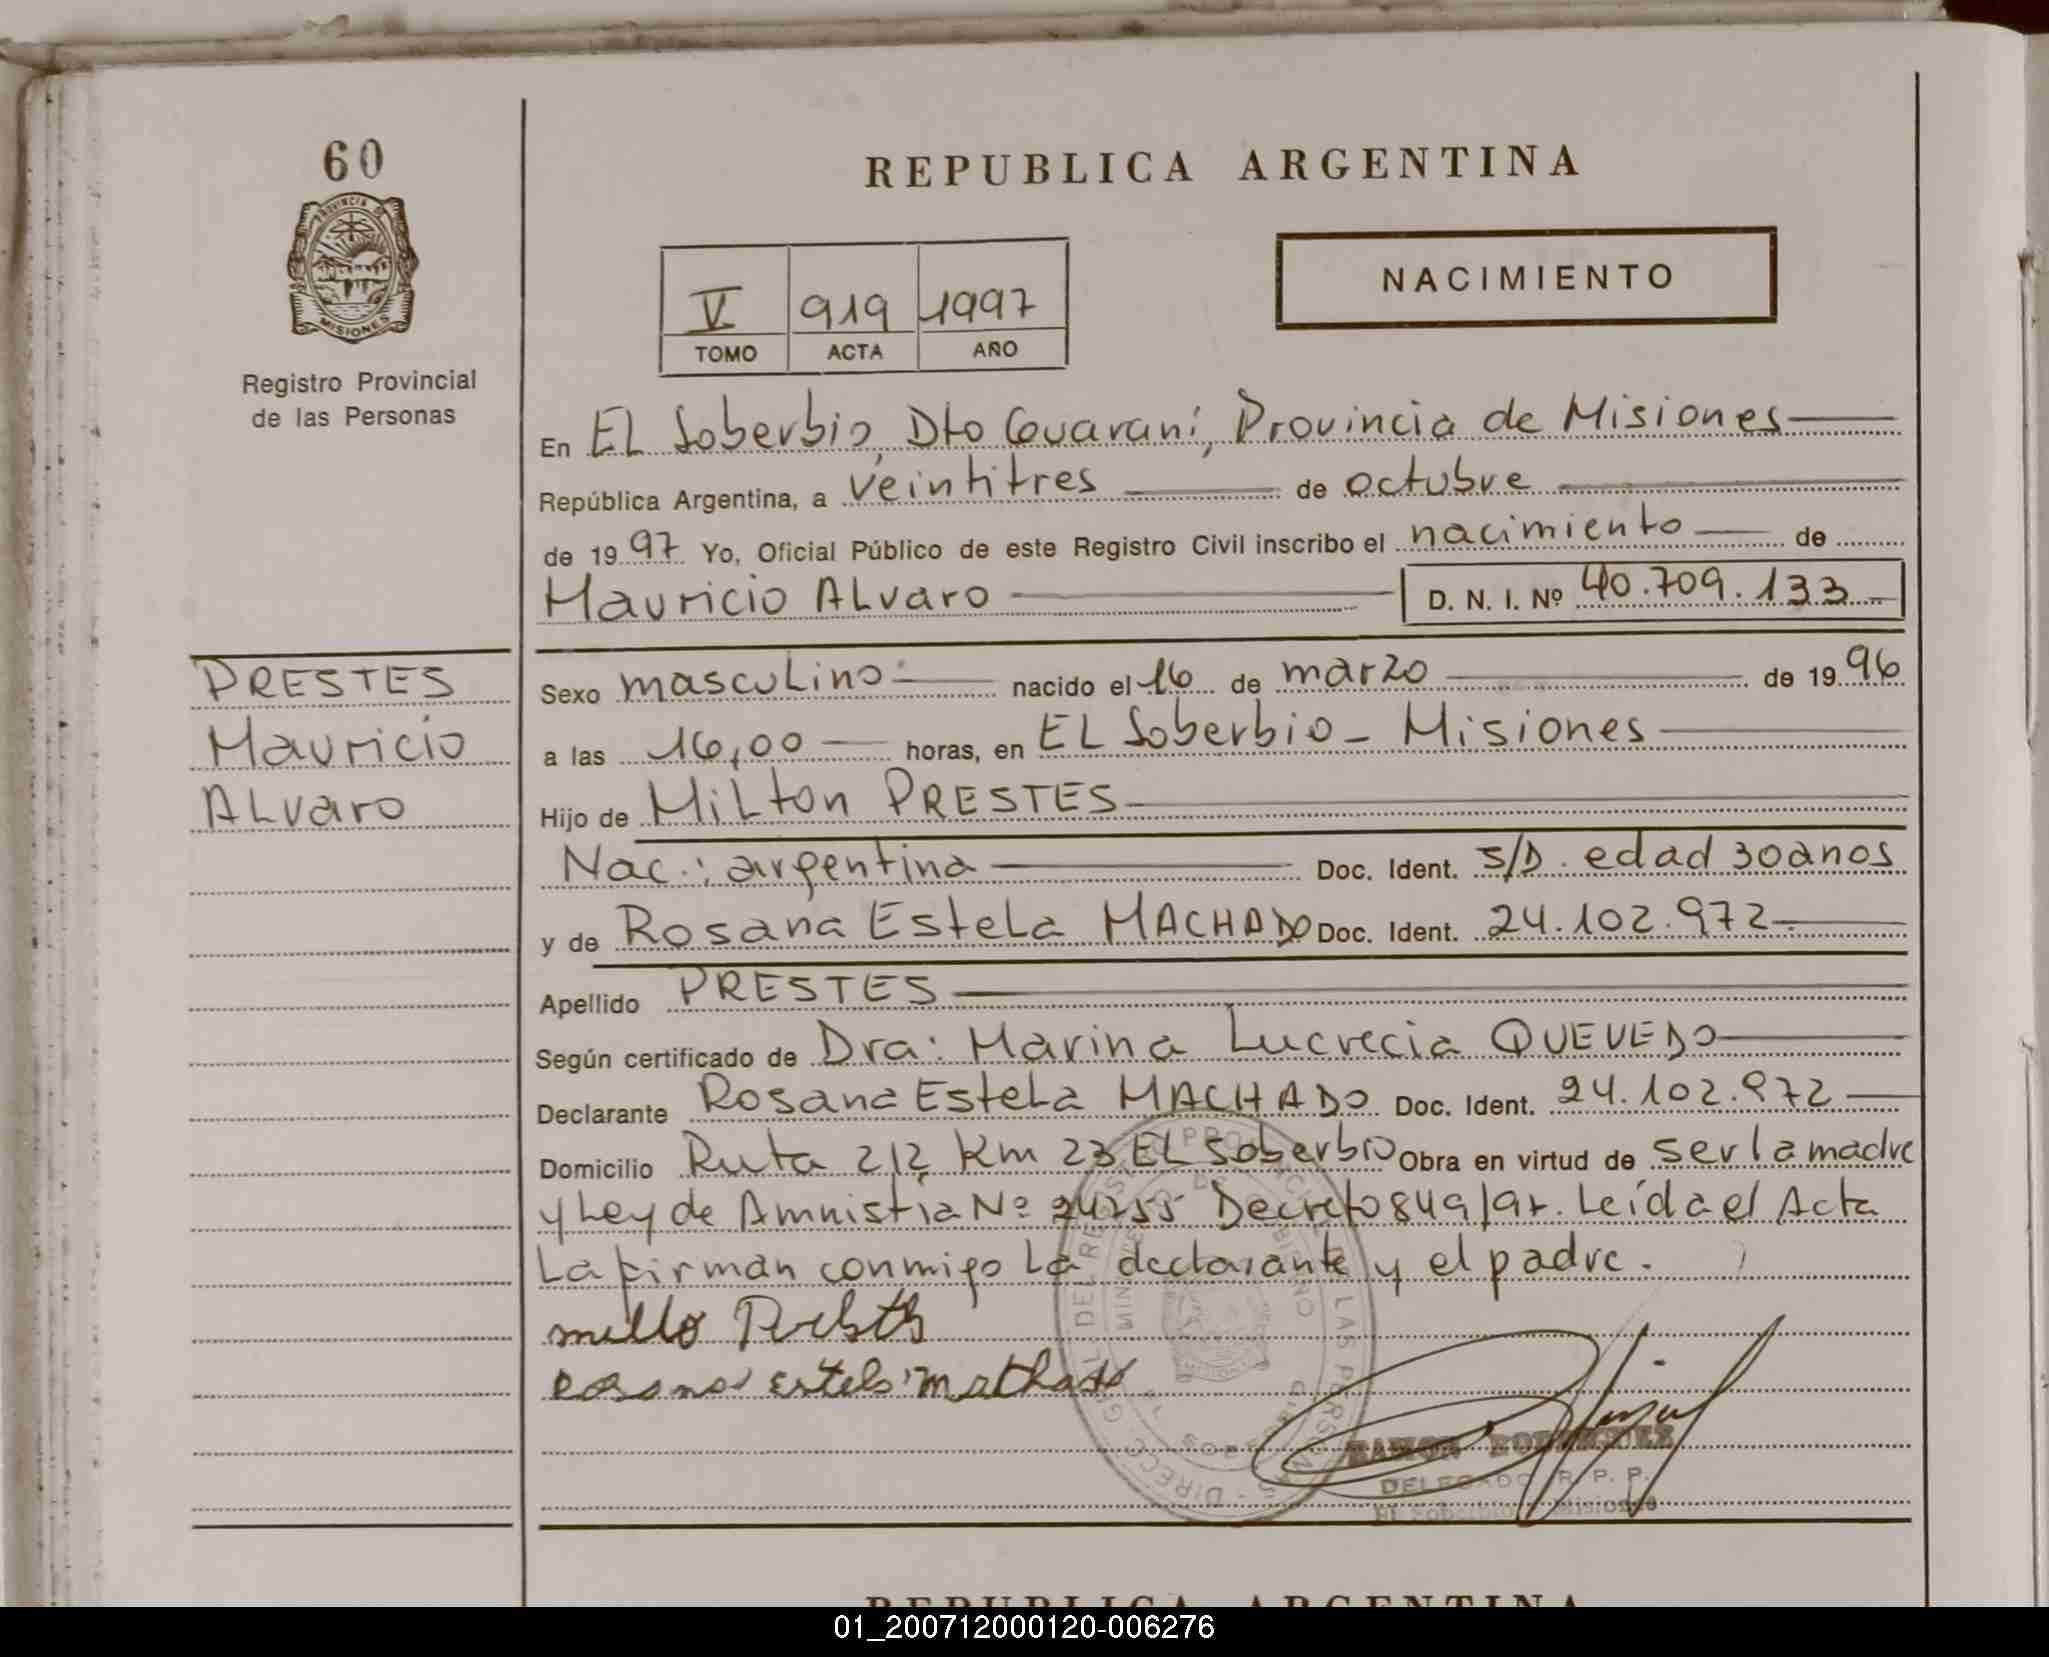 60
PROVINCIA DE
MISIONES
Registro Provincial
de las Personas
REPUBLICA ARGENTINA
NACIMIENTO
V 919 1997
TOMO ACTA AÑO
En EL Soberbio, Dto Guaraní, Provincia de Misiones
República Argentina, a veintitres de octubre
de 1997 Yo, Oficial Público de este Registro Civil inscribo el nacimiento de
Mauricio ALvaro D. N. I. Nº 40.709.133
PRESTES
Mauricio
ALvaro
Sexo mascuLino nacido el 16 de marzo de 1996
a las 16,00 horas, en EL Soberbio - Misiones
Hijo de MiLton PRESTES
Nac.: argentina Doc. Ident. S/D. edad 30anos
y de Rosana EsteLa MACHADO Doc. Ident. 24.102.972
Apellido PRESTES
Según certificado de Dra: Marina Lucrecia QUEVEDO
Declarante Rosana EsteLa MACHADO Doc. Ident. 24.102.972
Domicilio Ruta 212 Km 23 EL Soberbio Obra en virtud de ser la madre
y Ley de Amnistía Nº 24255 Decreto 849/97. Leída el Acta
La firman conmigo La declarante y el padre.
RAMON RODRIGUEZ
DELEGADO R. P. P.
El Soberbio - Misiones
REPUBLICA ARGENTINA
01_200712000120-006276